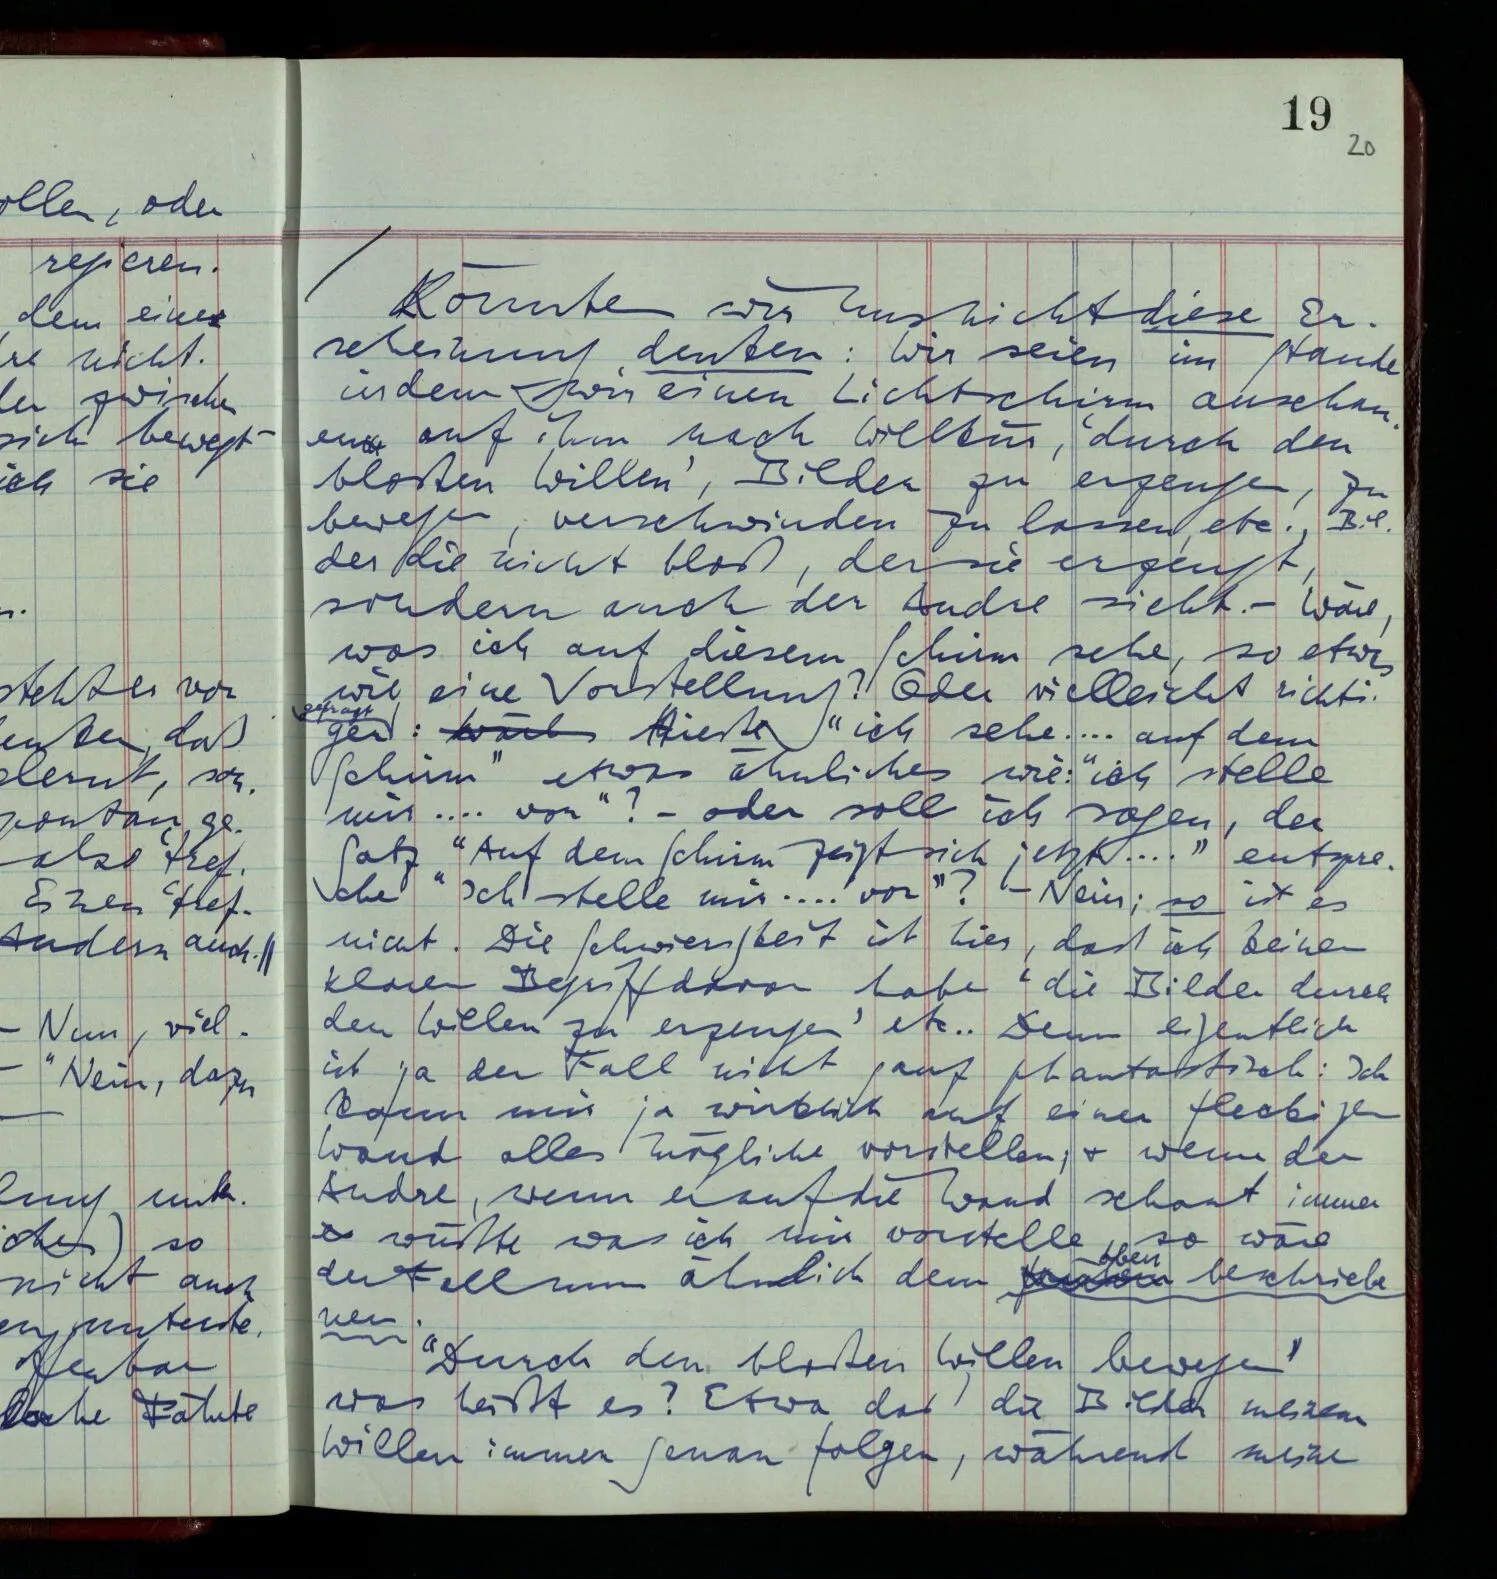 ollen, oder
regieren.
dem eine
re nicht.
der zwischen
sich bewegt
ich sie
n.
steht es vor
enken, daß
lernt, son-
spontan, ge-
also "tref-
Einen "tref-
Andern auch."
– Nun, viel-
– "Nein, dazu
lung unter-
iches) so
nicht auch
en, unterste.
Offenbar
Fährte
19
20
/ Könnten wir uns nicht diese Er-
scheinung denken: Wir seien im Stande
indem wir einen Lichtschirm anschau-
en auf ihm nach Willkür, 'durch den
bloßen Willen', Bilder zu erzeugen, zu
bewegen, verschwinden zu lassen, etc., Bil-
der die nicht bloß, der sie erzeugt,
sondern auch der Andre sieht. – Wäre,
was ich auf diesem Schirm sehe, so etwas
wie eine Vorstellung? Oder vielleicht richti-
gefragt
ger: wäre Hieße "ich sehe .... auf dem
Schirm" etwas ähnliches wie: "ich stelle
mir .... vor"? – oder soll ich sagen, der
Satz "Auf dem Schirm zeigt sich jetzt ...." entspre-
che "Ich stelle mir .... vor"? – Nein; so ist es
nicht. Die Schwierigkeit ist hier, daß ich keinen
klaren Begriff davon habe 'die Bilder durch
den Willen zu erzeugen' etc.. Denn eigentlich
ist ja der Fall nicht ganz phantastisch: Ich
kann mir ja wirklich auf einer fleckigen
Wand alles Mögliche vorstellen; + wenn der
Andre, wenn er auf die Wand schaut immer
wüßte was ich mir vorstelle, so wäre
oben
der Fall nun ähnlich dem beschriebe
nen.
"Durch den bloßen Willen bewegen"
was heißt es? Etwa daß die Bilder meinem
Willen immer genau folgen, während meine